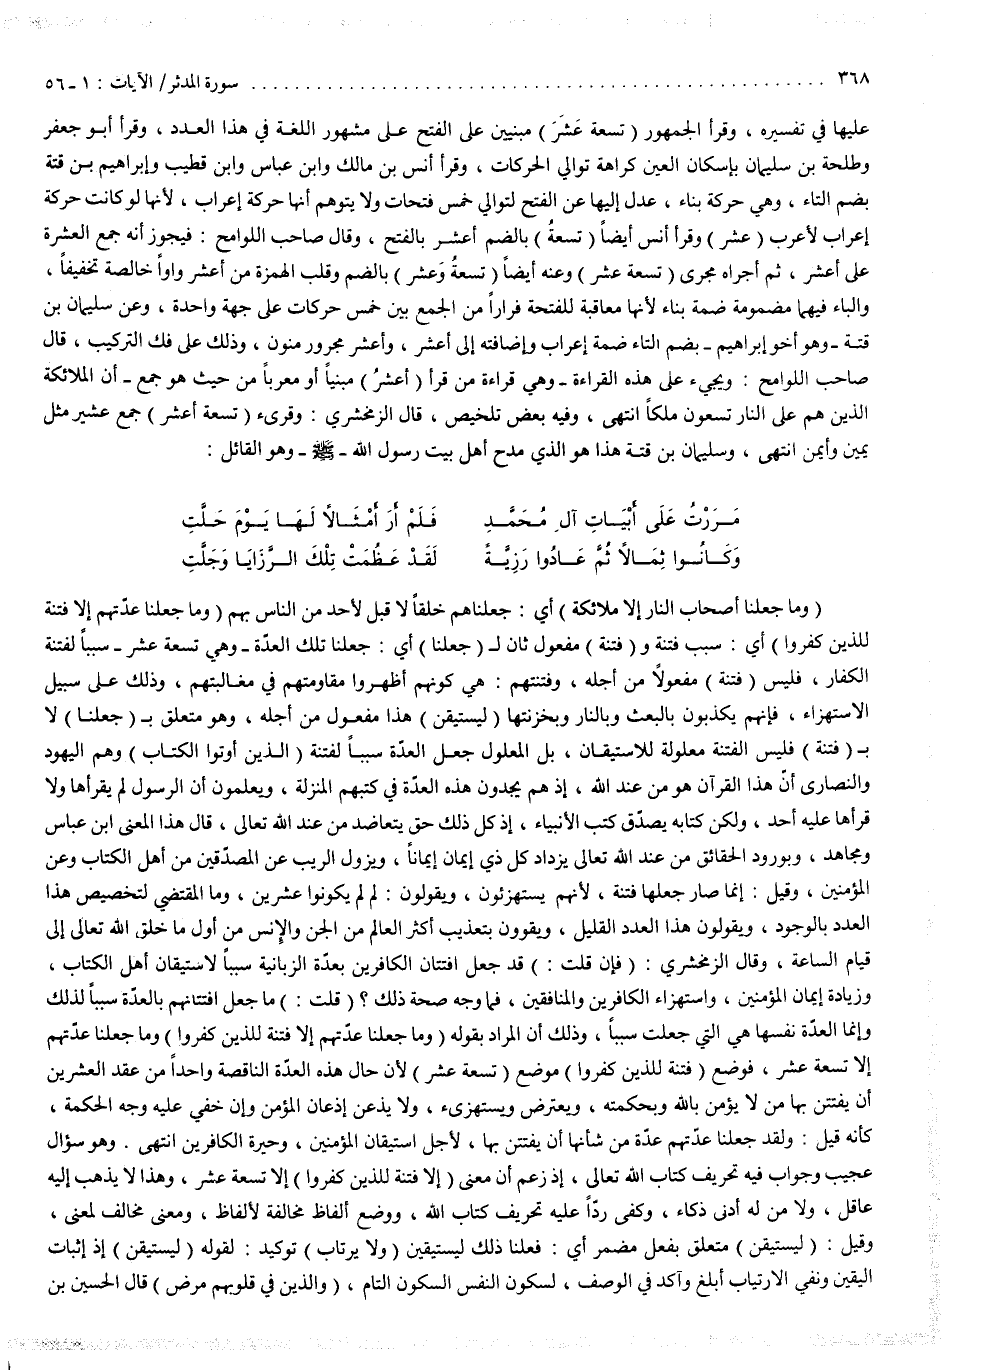 ٣٦٨ . . . . . . . . . . . . . . . . . . . . . . . . . . . . . . . . . . . . . . . . . . . . . . . . سورة المدثر/ الآيات : ١ ـ ٥٦
عليها في تفسيره ، وقرأ الجمهور ( تسعة عَشَرَ ) مبنيين على الفتح على مشهور اللغة في هذا العدد ، وقرأ أبو جعفر
وطلحة بن سليمان بإسكان العين كراهة توالي الحركات ، وقرأ أنس بن مالك وابن عباس وابن قطيب وإبراهيم بن قتة
بضم التاء ، وهي حركة بناء ، عدل إليها عن الفتح لتوالي خمس فتحات ولا يتوهم أنها حركة إعراب ، لأنها لو كانت حركة
إعراب لأعرب ( عشر ) وقرأ أنس أيضاً ( تسعةُ ) بالضم أعشر بالفتح ، وقال صاحب اللوامح : فيجوز أنه جمع العشرة
على أعشر ، ثم أجراه مجرى ( تسعة عشر ) وعنه أيضاً ( تسعةُ وَعشر ) بالضم وقلب الهمزة من أعشر واواً خالصة تخفيفاً ،
والباء فيهما مضمومة ضمة بناء لأنها معاقبة للفتحة فراراً من الجمع بين خمس حركات على جهة واحدة ، وعن سليمان بن
قتة ـ وهو أخو إبراهيم ـ بضم التاء ضمة إعراب وإضافته إلى أعشر ، وأعشر مجرور منون ، وذلك على فك التركيب ، قال
صاحب اللوامح : ويجيء على هذه القراءة ـ وهي قراءة من قرأ ( أعشرُ ) مبنياً أو معرباً من حيث هو جمع ـ أن الملائكة
الذين هم على النار تسعون ملكاً انتهى ، وفيه بعض تلخيص ، قال الزمخشري : وقرىء ( تسعة أعشر ) جمع عشير مثل
يمين وأيمن انتهى ، وسليمان بن قتة هذا هو الذي مدح أهل بيت رسول الله ـ ﷺ ـ وهو القائل :
مَـرَرْتُ عَلَى أَبْيَـاتِ آلِ مُحَمَّـدٍ فَلَمْ أَرَ أَمْثَـالًا لَهَـا يَـوْمَ حَلَّتِ
وَكَـانُـوا ثِمَـالًا ثُمَّ عَـادُوا رَزِيَّـةً لَقَدْ عَـظُمَتْ تِلْكَ الـرَّزَايَـا وَجَلَّتِ
( وما جعلنا أصحاب النار إلا ملائكة ) أي : جعلناهم خلقاً لا قبل لأحد من الناس بهم ( وما جعلنا عدّتهم إلا فتنة
للذين كفروا ) أي : سبب فتنة و ( فتنة ) مفعول ثان لـ ( جعلنا ) أي : جعلنا تلك العدّة ـ وهي تسعة عشر ـ سبباً لفتنة
الكفار ، فليس ( فتنة ) مفعولاً من أجله ، وفتنتهم : هي كونهم أظهروا مقاومتهم في مغالبتهم ، وذلك على سبيل
الاستهزاء ، فإنهم يكذبون بالبعث وبالنار وبخزنتها ( ليستيقن ) هذا مفعول من أجله ، وهو متعلق بـ ( جعلنا ) لا
بـ ( فتنة ) فليس الفتنة معلولة للاستيقان ، بل المعلول جعل العدّة سبباً لفتنة ( الذين أوتوا الكتاب ) وهم اليهود
والنصارى أنّ هذا القرآن هو من عند الله ، إذ هم يجدون هذه العدّة في كتبهم المنزلة ، ويعلمون أن الرسول لم يقرأها ولا
قرأها عليه أحد ، ولكن كتابه يصدّق كتب الأنبياء ، إذ كل ذلك حق يتعاضد من عند الله تعالى ، قال هذا المعنى ابن عباس
ومجاهد ، وبورود الحقائق من عند الله تعالى يزداد كل ذي إيمان إيماناً ، ويزول الريب عن المصدّقين من أهل الكتاب وعن
المؤمنين ، وقيل : إنما صار جعلها فتنة ، لأنهم يستهزئون ، ويقولون : لم لم يكونوا عشرين ، وما المقتضي لتخصيص هذا
العدد بالوجود ، ويقولون هذا العدد القليل ، ويقوون بتعذيب أكثر العالم من الجن والإنس من أول ما خلق الله تعالى إلى
قيام الساعة ، وقال الزمخشري : ( فإن قلت : ) قد جعل افتتان الكافرين بعدّة الزبانية سبباً لاستيقان أهل الكتاب ،
وزيادة إيمان المؤمنين ، واستهزاء الكافرين والمنافقين ، فما وجه صحة ذلك ؟ ( قلت : ) ما جعل افتتانهم بالعدّة سبباً لذلك
وإنما العدّة نفسها هي التي جعلت سبباً ، وذلك أن المراد بقوله ( وما جعلنا عدّتهم إلا فتنة للذين كفروا ) وما جعلنا عدّتهم
إلا تسعة عشر ، فوضع ( فتنة للذين كفروا ) موضع ( تسعة عشر ) لأن حال هذه العدّة الناقصة واحداً من عقد العشرين
أن يفتتن بها من لا يؤمن بالله وبحكمته ، ويعترض ويستهزىء ، ولا يذعن إذعان المؤمن وإن خفي عليه وجه الحكمة ،
كأنه قيل : ولقد جعلنا عدّتهم عدّة من شأنها أن يفتتن بها ، لأجل استيقان المؤمنين ، وحيرة الكافرين انتهى . وهو سؤال
عجيب وجواب فيه تحريف كتاب الله تعالى ، إذ زعم أن معنى ( إلا فتنة للذين كفروا ) إلا تسعة عشر ، وهذا لا يذهب إليه
عاقل ، ولا من له أدنى ذكاء ، وكفى ردّاً عليه تحريف كتاب الله ، ووضع ألفاظ مخالفة لألفاظ ، ومعنى مخالف لمعنى ،
وقيل : ( ليستيقن ) متعلق بفعل مضمر أي : فعلنا ذلك ليستيقين ( ولا يرتاب ) توكيد : لقوله ( ليستيقن ) إذ إثبات
اليقين ونفي الارتياب أبلغ وآكد في الوصف ، لسكون النفس السكون التام ، ( والذين في قلوبهم مرض ) قال الحسين بن